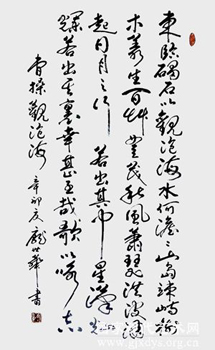 東臨碣石以觀滄海水何澹々山島竦峙樹
木叢生百艸豐茂秋風蕭瑟洪波湧
起日月之行若出其中星漢燦
爛若出其裏幸甚至哉歌以咏志
曹操觀滄海 辛卯夏 龐書